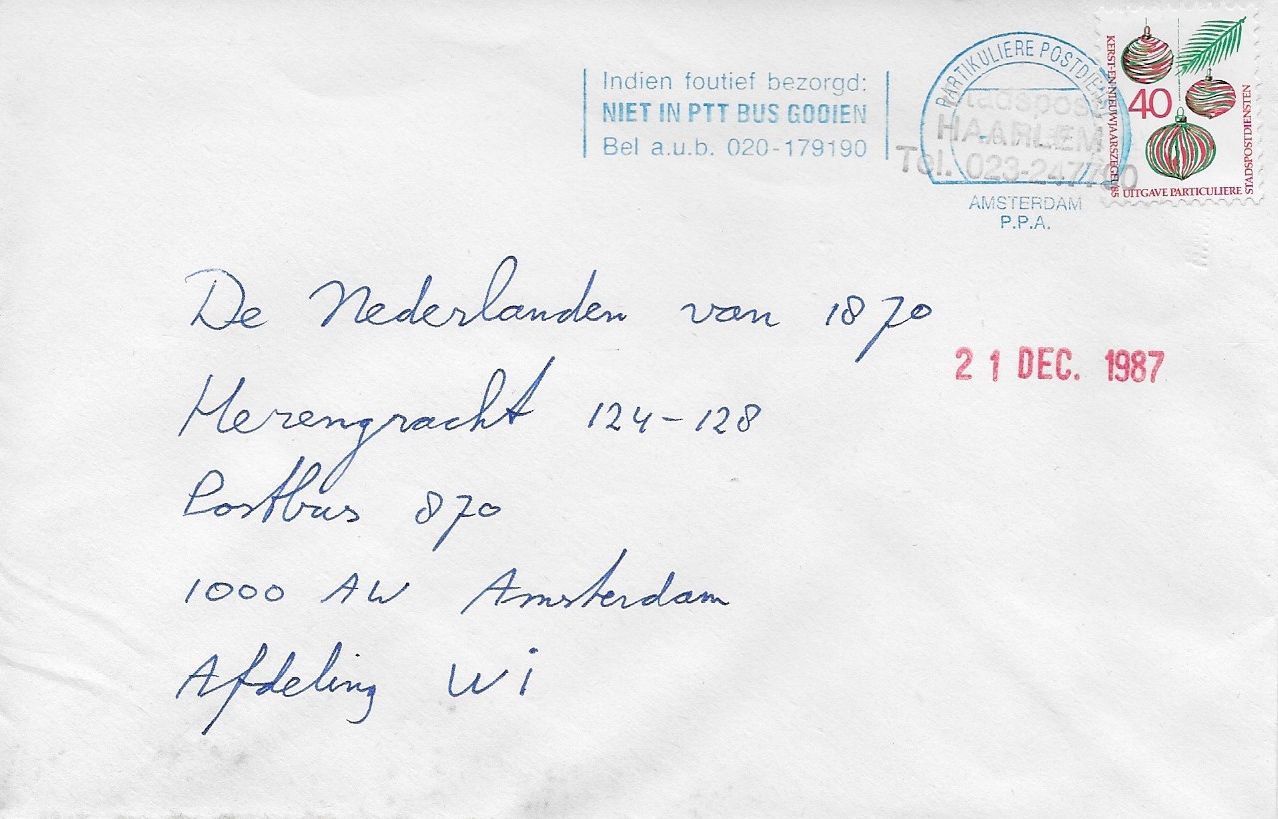 Indien foutief bezorgd:
NIET IN PTT BUS GOOIEN
Bel a.u.b. 020-179190
PARTIKULIERE POSTDIEN
Stadspost
HAARLEM
Tel. 023-247700
AMSTERDAM
P.P.A.
KERST-EN NIEUWJAARSZEGEL '85
40
UITGAVE PARTICULIERE
STADSPOSTDIENSTEN
De Nederlanden van 1870
21 DEC. 1987
Herengracht 124-128
Postbus 870
1000 AW Amsterdam
Afdeling Wi